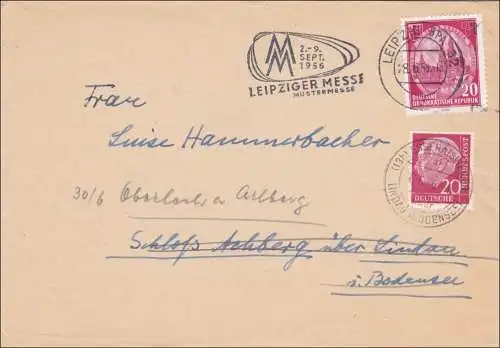 2.-9.
SEPT.
1956
LEIPZIGER MESSE
MUSTERMESSE
LEIPZIG
20
DEUTSCHE
DEMOKRATISCHE REPUBLIK
Frau
Luise Hammerbacher
30/6 Oberlech a. Arlberg
Schloß Achberg über Lindau
i. Bodensee
20
DEUTSCHE
BUNDESPOST